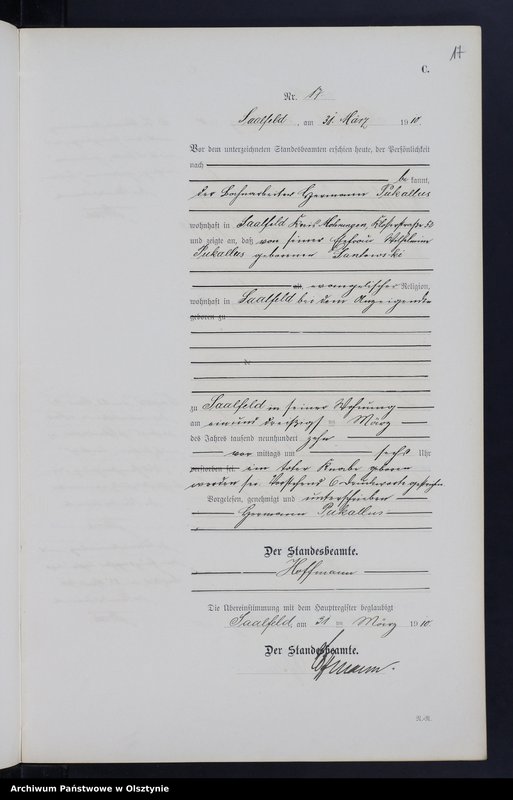 17
C.
Nr. 17
Saalfeld, am 31. März 1910.
Vor dem unterzeichneten Standesbeamten erschien heute, der Persönlichkeit
nach
be kannt,
der Bahnarbeiter Hermann Pukallus
wohnhaft in Saalfeld Kreis Mohrungen, Klosterstraße 52
und zeigte an, daß von seiner Ehefrau Wilhelmine
Pukallus geborenen
alt, evangelischer Religion,
wohnhaft in Saalfeld bei dem Anzeigenden
geboren zu
de
zu Saalfeld in seiner Wohnung
am ein und dreißigsten März
des Jahres tausend neunhundert zehn
vor mittags um sechs Uhr
verstorben sei. ein toter Knabe geboren
worden sei. Vorstehend 6 Druckworte gestrichen
Vorgelesen, genehmigt und unterschrieben
Hermann Pukallus
Der Standesbeamte.
Hoffmann
Die Übereinstimmung mit dem Hauptregister beglaubigt
Saalfeld, am 31 ten März 1910.
Der Standesbeamte.
Hoffmann.
Archiwum Państwowe w Olsztynie